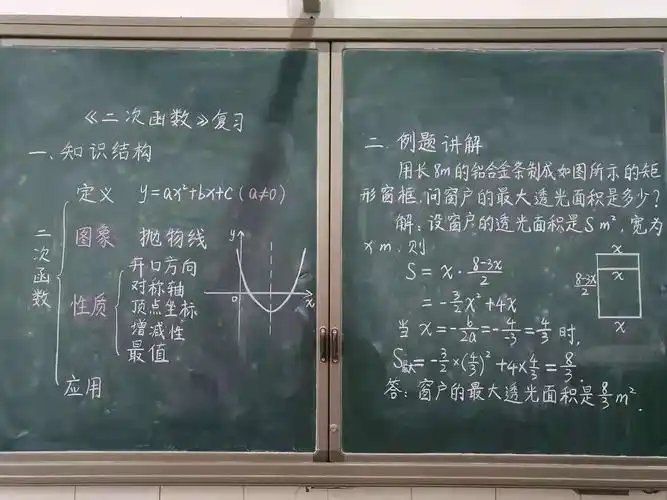 《二次函数》复习
一、知识结构
二次函数
定义 y=ax²+bx+c(a≠0)
图象 抛物线
性质
开口方向
对称轴
顶点坐标
增减性
最值
应用
y
o
x
二 例题讲解
用长8m的铝合金条制成如图所示的矩
形窗框,问窗户的最大透光面积是多少?
解:设窗户的透光面积是S m²,宽为
x m,则
S = x·(8-3x)/2
= -3/2x²+4x
当 x=-b/2a=-4/-3=4/3 时,
S最大=-3/2×(4/3)²+4×4/3=8/3.
答:窗户的最大透光面积是8/3m².
x
x
(8-3x)/2
x